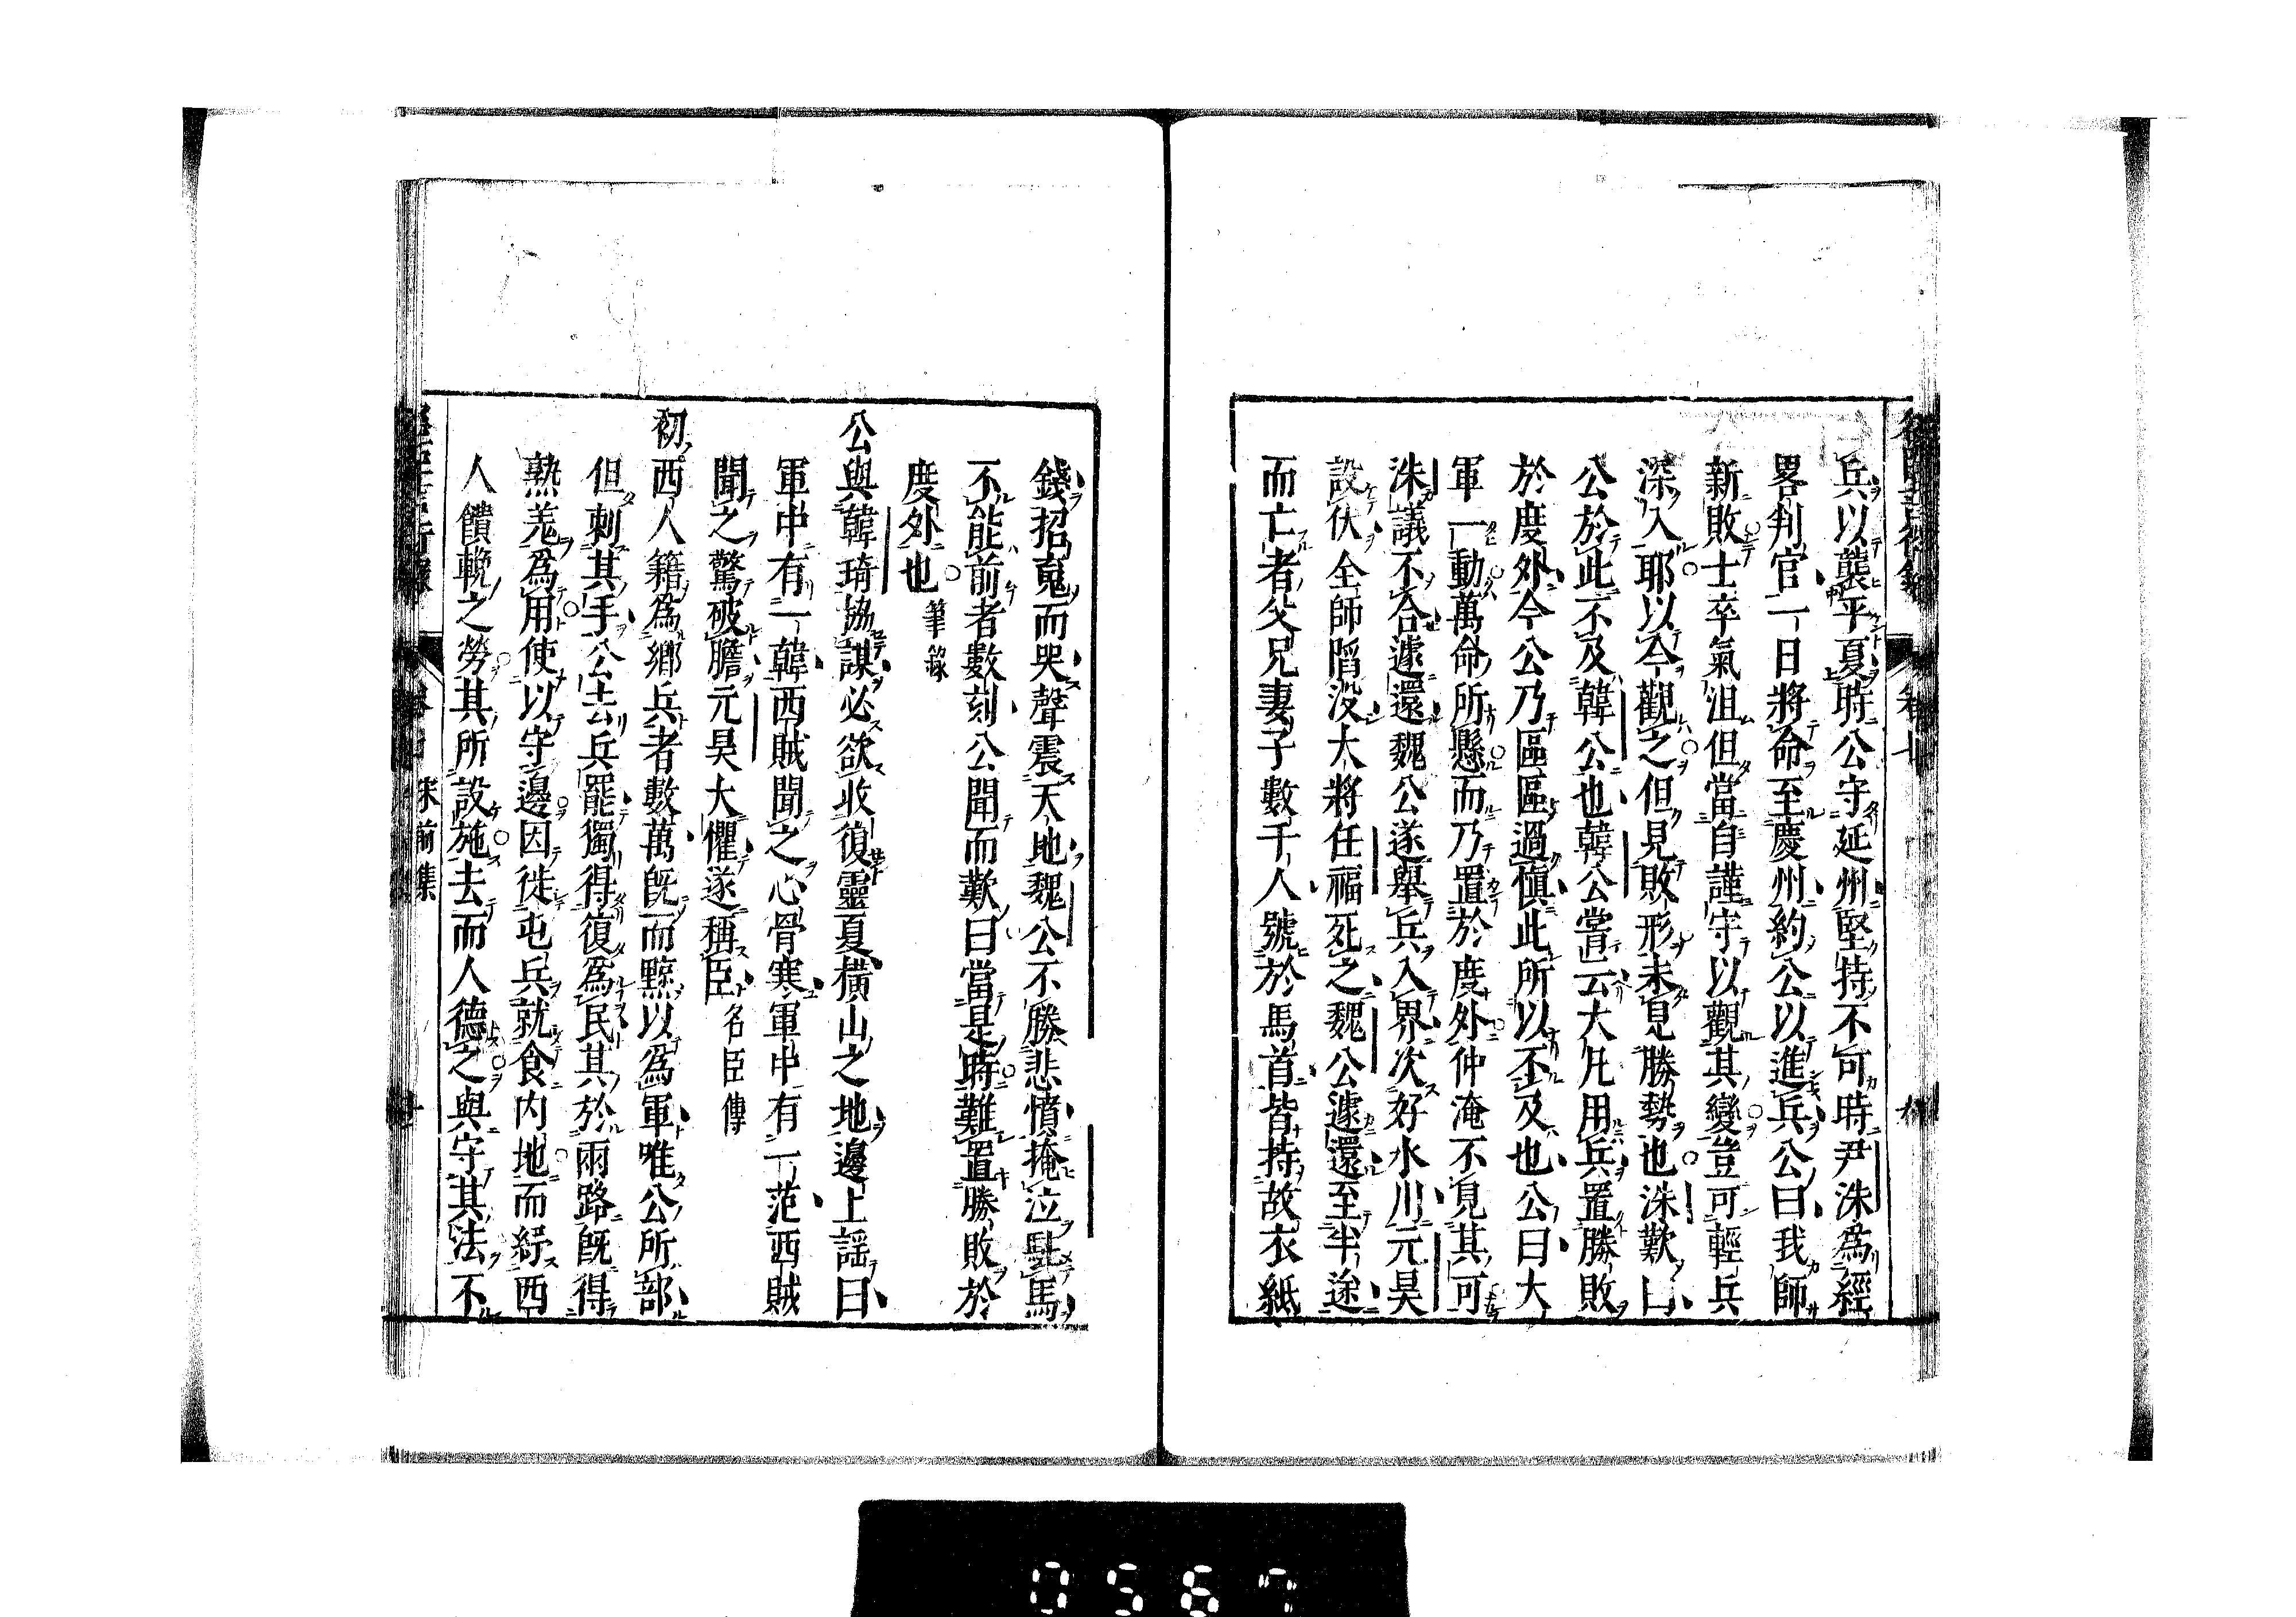 兵以襲平夏時公守延州堅持不可時尹洙為經
畧判官一日將命至慶州約公以進兵公曰我師
新敗士卒氣沮但當自謹守以觀其變豈可輕兵
深入耶以今觀之但見敗形未見勝勢也洙歎曰
公於此不及韓公也韓公嘗云大凡用兵置勝敗
於度外今公乃區區過慎此所以不及也公曰大
軍一動萬命所懸而乃置於度外仲淹不見其可
洙議不合遽還魏公遂舉兵入界次好水川元昊
設伏全師陷没大將任福死之魏公遽還至半途
而亡者父兄妻子數千人號於馬首皆持故衣紙
錢招䰟而哭聲震天地魏公不勝悲憤掩泣駐馬
不能前者數刻公聞而歎曰當是時難置勝敗於
度外也 筆錄
公與韓琦協謀必欲收復靈夏橫山之地邊上謡曰
軍中有一韓西賊聞之心骨寒軍中有一范西賊
聞之驚破膽元昊大懼遂稱臣 名臣傳
初西人籍為鄉兵者數萬旣而黥以為軍唯公所部
但刺其手公去兵罷獨得復為民其於兩路旣得
熟羌為用使以守邊因徙屯兵就食内地而紓西
人饋輓之勞其所設施去而人德之與守其法不
宋前集
0567